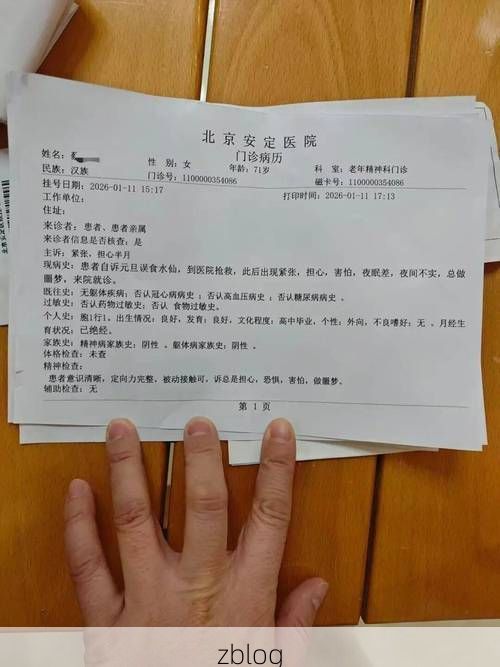 北京安定医院
门诊病历
姓名： 性 别：女 年龄：71岁 科 室：老年精神科门诊
民族：汉族 门诊号：1100000354086 磁卡号：1100000354086
挂号日期：2026-01-11 15:17 打印时间：2026-01-11 17:13
工作单位：
住址：
来诊者：患者、患者亲属
来诊者信息是否核查：是
主诉：紧张，担心半月
现病史：患者自诉元旦误食水仙，到医院抢救，此后出现紧张，担心，害怕，夜眠差，夜间不实，总做
噩梦，来院就诊。
既往史：无躯体疾病；否认冠心病病史 ；否认高血压病史 ；否认糖尿病病史 。
过敏史：否认药物过敏史；否认 食物过敏史。
个人史：胞1行1。出生情况：良好，发育：良好，文化程度：高中毕业，个性：外向，不良嗜好：无 。月经生
育状况：已绝经。
家族史：精神病家族史：阴性 。躯体病家族史：阴性 。
体格检查：未查
精神检查：
患者意识清晰，定向力完整，被动接触可，诉总是担心，恐惧，害怕，做噩梦。
辅助检查：无
第 1 页
zblog